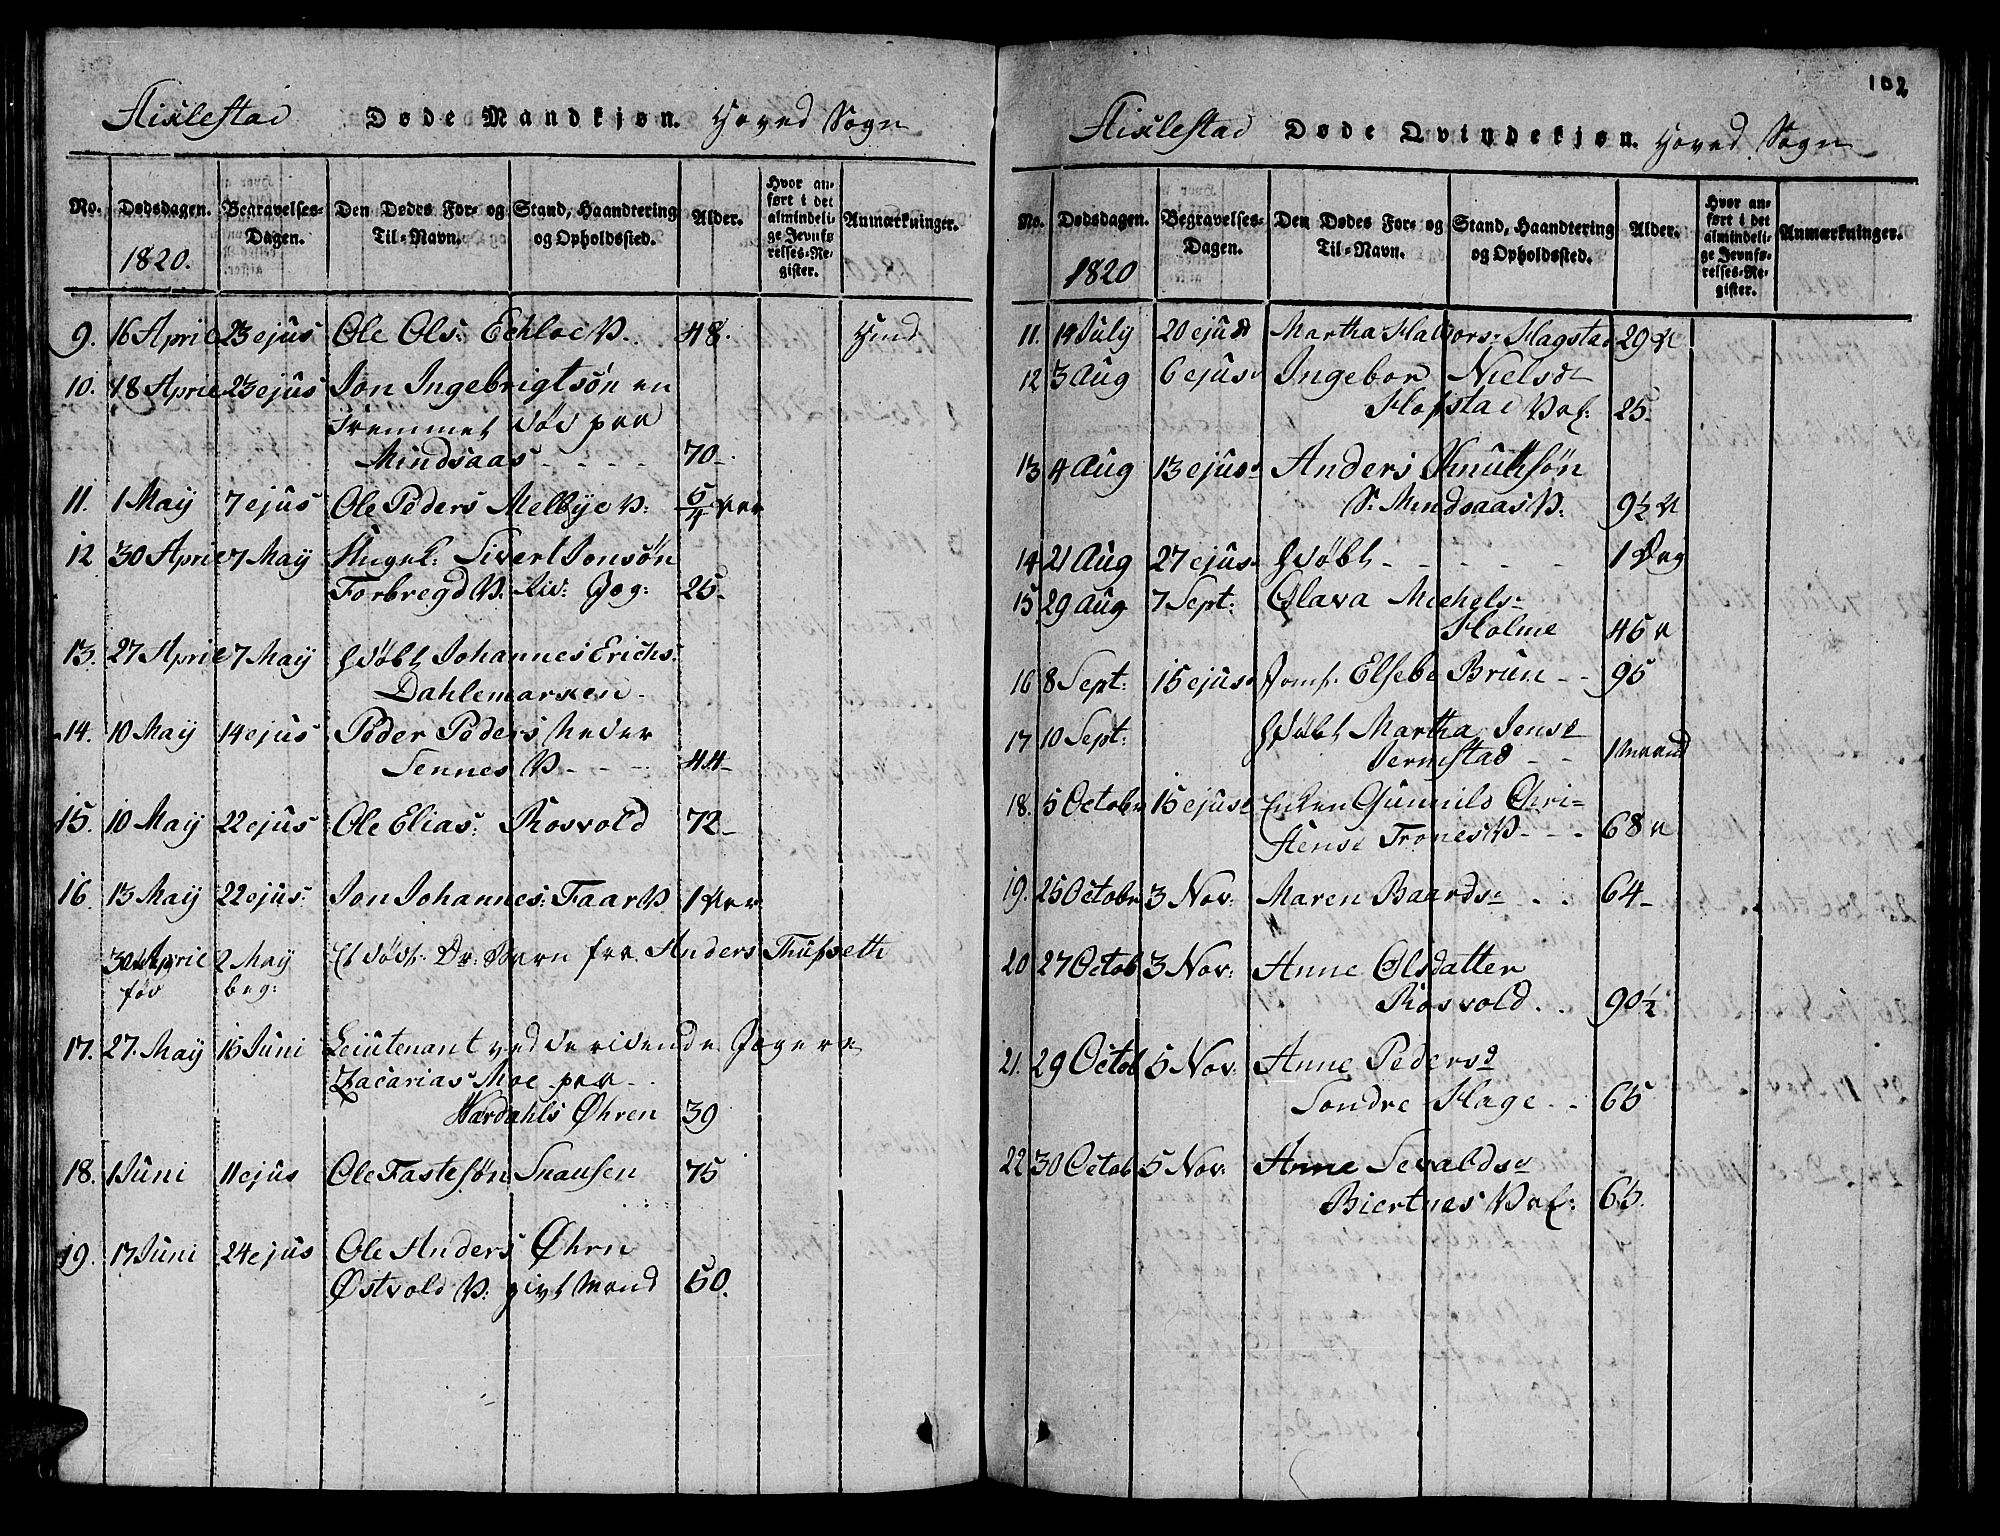 Stiklestad Døde Mandkjøn. Hoved Sogn
No. Dødsdagen. Begravelses-Dagen. Den Dødes For- og Til-Navn. Stand, Haandtering og Opholdssted. Alder. Hvor anført i det almindelige Jevnførelses-Register. Anmærkninger.
1820.
9. 16 April 23 ejus Ole Ols: Echloe P. 48.
10. 18 April 23 ejus Jon Ingebrigtsøn en
fremmet død paa
Mindsaas - - - - 70-
11. 1 May 7 ejus Ole Peders Melbye P: 5/4 Aar
12 30 April 7 May Ungk: Sivert Jonsøn
Forbregd P. Rid: Jæg: 25-
13. 27 April 7 May Hjdøbt Johannes Erichs:
Dahlemarken -
14. 10 May 14 ejus Peder Peders Neder
Tennes P - - - 44-
15. 10 May 22 ejus Ole Elias: Rosvold 72-
16. 13 May 22 ejus: Jon Johannes: Faar P. 1 Aar
30 April 2 May Et dødf: Dr: Barn fra Anders Thusseth
fød beg:
17. 27. May 15 Juni Leiutenant ved de ridende Jægere
Zacarias Moe paa
Værdahls Øhren 39
18. 1 Juni 11 ejus Ole Fastesøn Snausen 75
19. 17 Juni 24 ejus Ole Anders Øhrn
Østvold P: givt Mand 50.
102
Stiklestad Døde Qvindekjøn. Hoved Sogn
No. Dødsdagen. Begravelses-Dagen. Den Dødes For- og Til-Navn. Stand, Haandtering og Opholdssted. Alder. Hvor anført i det almindelige Jevnførelses-Register. Anmærkninger.
1820
11. 14 July 20 ejusd Martha Halvors: Hagstad 29
12 3 Aug 6 ejusd Ingebor Nielsd
Hofstad 25-
13 4 Aug 13 ejusd Anders Knutsøn
S: Mindsaas P: 9½
14 21 Aug 27 ejusd Hjdøbt - - - - - 1 Dag
15 29 Aug 7 Sept: Olava Michels-
Holme 45
16 8 Sept: 15 ejusd Jomf: Elsebe Brun - - 95
17 10 Sept: Hjdøbt Martha Jensd
Jermstad - - 1 Maaned
18. 5 Octobr 15 ejusd Enken Gunnild Chri=
stensd Trones P - - - 68
19. 25 Octobr 3 Nov: Maren Baardsd . . 64-
20 27 Octob 3 Nov: Anne Olsdatter
Rosvold . . 90½
21. 29 Octob 5 Nov: Anne Pedersd
Søndre Hage - - 65
22 30 Octob 5 Nov: Anne Sevaldsd
Biertnes 65.